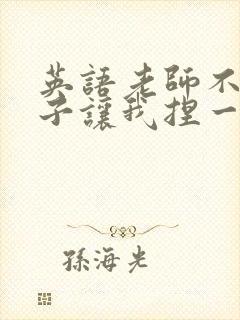 英語老師不
子讓我捏一
孫海光